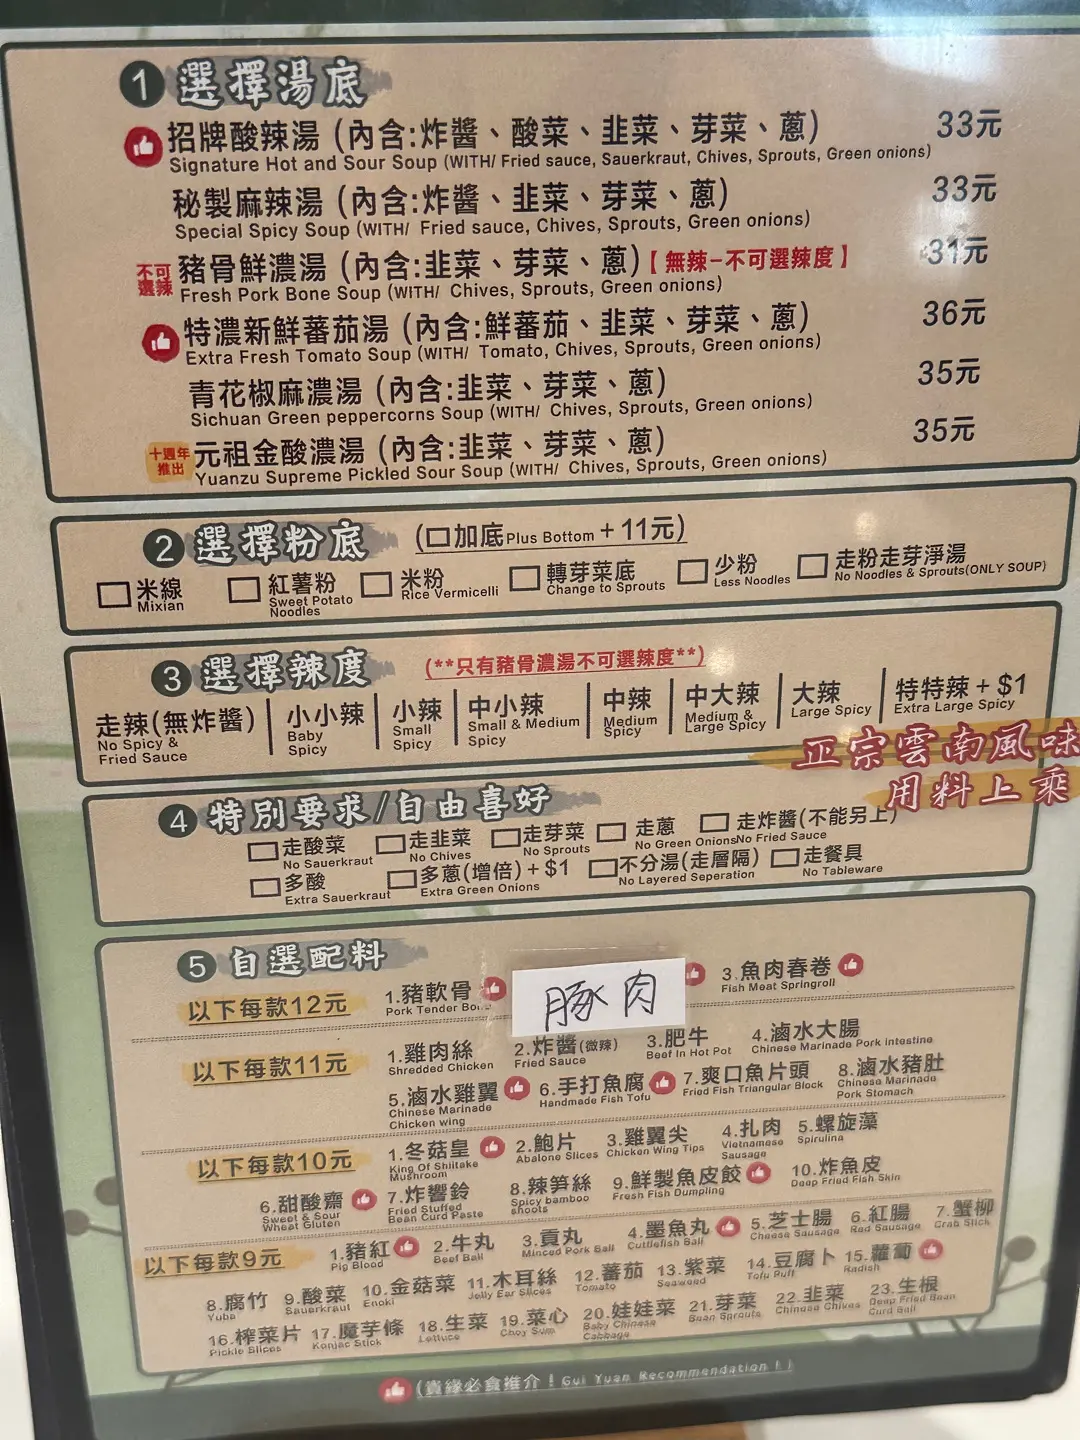 1 選擇湯底
招牌酸辣湯 (內含:炸醬、酸菜、韭菜、芽菜、蔥) 33元
Signature Hot and Sour Soup (WITH/ Fried sauce, Sauerkraut, Chives, Sprouts, Green onions)
秘製麻辣湯 (內含:炸醬、韭菜、芽菜、蔥) 33元
Special Spicy Soup (WITH/ Fried sauce, Chives, Sprouts, Green onions)
不可選辣 豬骨鮮濃湯 (內含:韭菜、芽菜、蔥)【無辣-不可選辣度】 31元
Fresh Pork Bone Soup (WITH/ Chives, Sprouts, Green onions)
特濃新鮮蕃茄湯 (內含:鮮蕃茄、韭菜、芽菜、蔥) 36元
Extra Fresh Tomato Soup (WITH/ Tomato, Chives, Sprouts, Green onions)
青花椒麻濃湯 (內含:韭菜、芽菜、蔥) 35元
Sichuan Green peppercorns Soup (WITH/ Chives, Sprouts, Green onions)
十週年推出 元祖金酸濃湯 (內含:韭菜、芽菜、蔥) 35元
Yuanzu Supreme Pickled Sour Soup (WITH/ Chives, Sprouts, Green onions)
2 選擇粉底 (口加底 Plus Bottom + 11元)
米線 紅薯粉 米粉 轉芽菜底 少粉 走粉走芽淨湯
Mixian Sweet Potato Noodles Rice Vermicelli Change to Sprouts Less Noodles No Noodles & Sprouts(ONLY SOUP)
3 選擇辣度 (**只有豬骨濃湯不可選辣度**)
走辣(無炸醬) 小小辣 小辣 中小辣 中辣 中大辣 大辣 特特辣 + $1
No Spicy & Fried Sauce Baby Spicy Small Spicy Small & Medium Spicy Medium Spicy Medium & Large Spicy Large Spicy Extra Large Spicy
正宗雲南風味
用料上乘
4 特別要求/自由喜好
走酸菜 走韭菜 走芽菜 走蔥 走炸醬(不能另上)
No Sauerkraut No Chives No Sprouts No Green Onions No Fried Sauce
多酸 多蔥(增倍) + $1 不分湯(走層隔) 走餐具
Extra Sauerkraut Extra Green Onions No Layered Seperation No Tableware
5 自選配料
以下每款12元 1.豬軟骨 豚肉 3.魚肉春卷
Pork Tender Bo Fish Meat Springroll
以下每款11元 1.雞肉絲 2.炸醬(微辣) 3.肥牛 4.滷水大腸
Shredded Chicken Fried Sauce Beef In Hot Pot Chinese Marinade Pork Intestine
5.滷水雞翼 6.手打魚腐 7.爽口魚片頭 8.滷水豬肚
Chinese Marinade Chicken wing Handmade Fish Tofu Fried Fish Triangular Block Chinese Marinade Pork Stomach
以下每款10元 1.冬菇皇 2.鮑片 3.雞翼尖 4.扎肉 5.螺旋藻
King Of Shiitake Mushroom Abalone Slices Chicken Wing Tips Vietnamese Sausage Spirulina
6.甜酸齋 7.炸響鈴 8.辣筍絲 9.鮮製魚皮餃 10.炸魚皮
Sweet & Sour Wheat Gluten Fried Stuffed Bean Curd Paste Spicy bamboo shoots Fresh Fish Dumpling Deep Fried Fish Skin
以下每款9元 1.豬紅 2.牛丸 3.貢丸 4.墨魚丸 5.芝士腸 6.紅腸 7.蟹柳
Pig Blood Beef Ball Minced Pork Ball Cuttlefish Ball Cheese Sausage Red Sausage Crab Stick
8.腐竹 9.酸菜 10.金菇菜 11.木耳絲 12.蕃茄 13.紫菜 14.豆腐卜 15.蘿蔔
Yuba Sauerkraut Enoki Jelly Ear Slices Tomato Seaweed Tofu Puff Radish
16.榨菜片 17.魔芋條 18.生菜 19.菜心 20.娃娃菜 21.芽菜 22.韭菜 23.生根
Pickle Slices Konjac Stick Lettuce Choy Sum Baby Chinese Cabbage Bean Sprouts Chinese Chives Deep Fried Bean Curd Ball
(貴緣必食推介! Gui Yuan Recommendation ! )